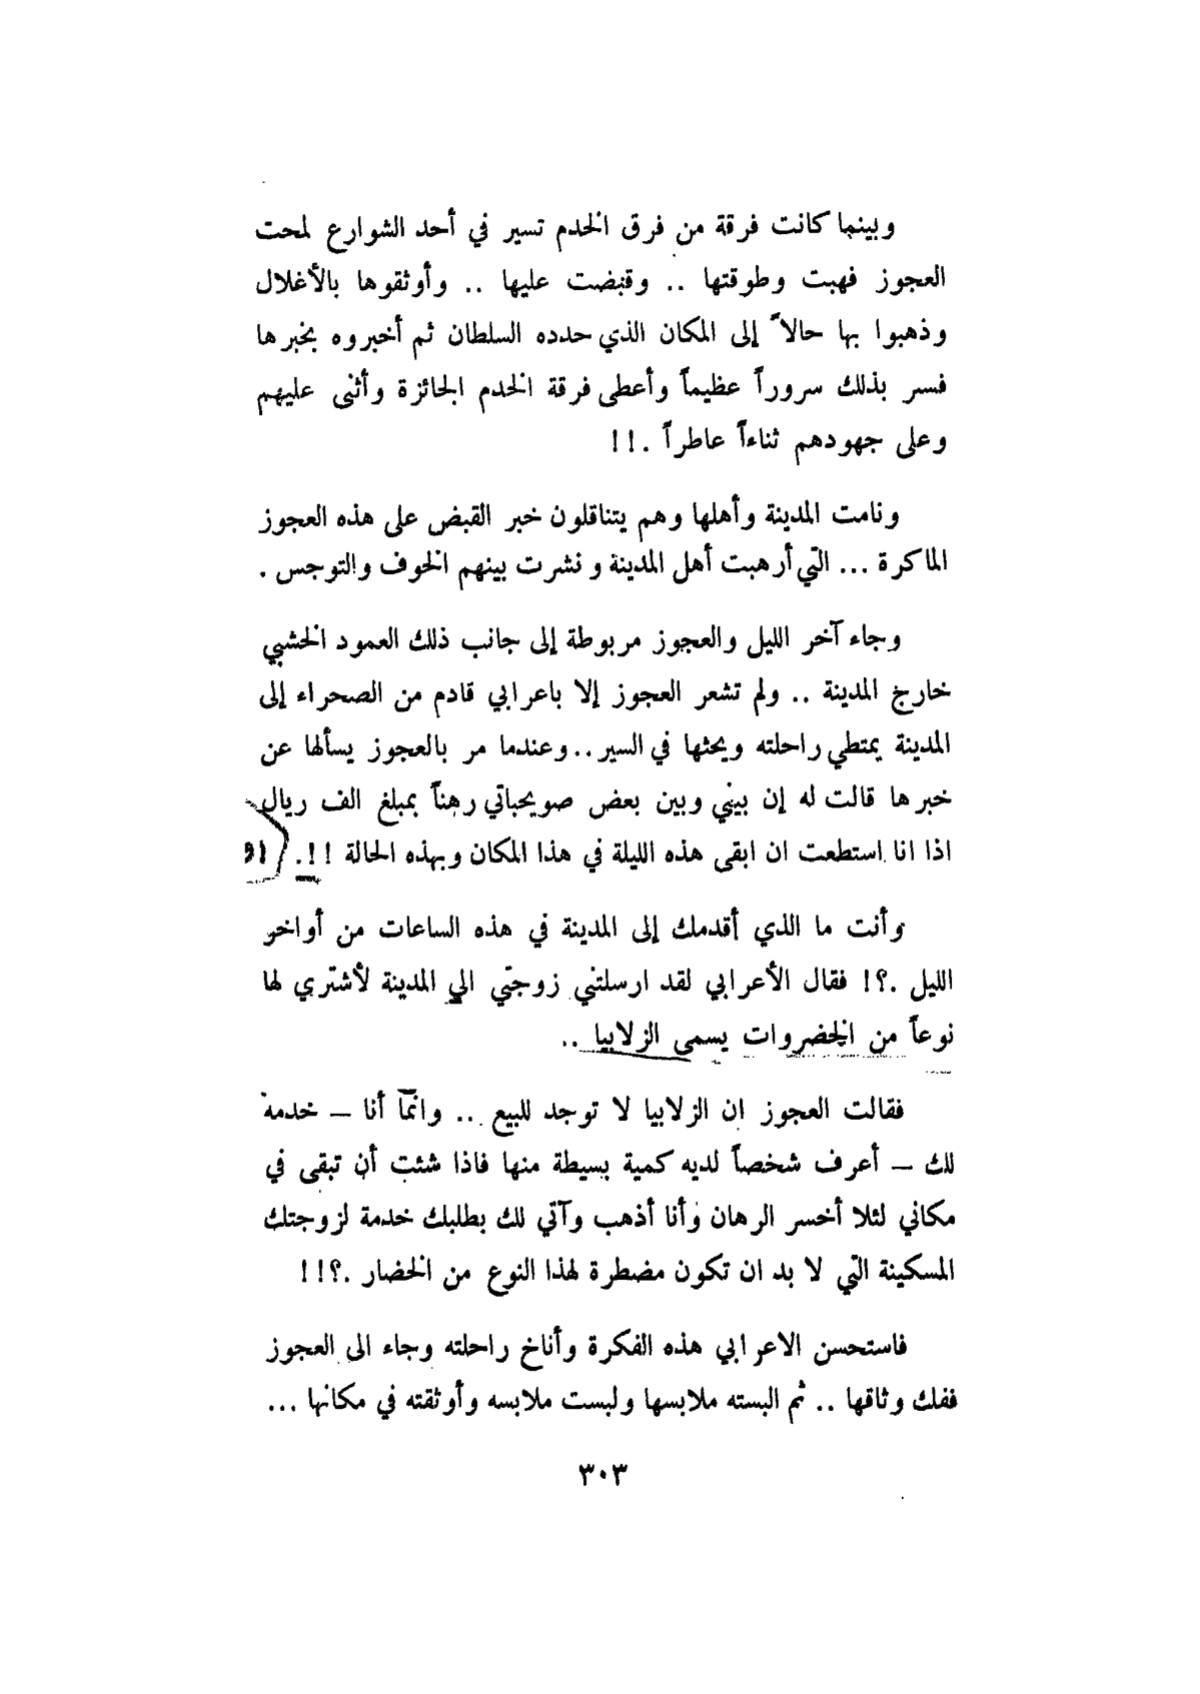 وبينما كانت فرقة من فرق الخدم تسير في أحد الشوارع لمحت
العجوز فهبت وطوقتها .. وقبضت عليها .. وأوثقوها بالأغلال
وذهبوا بها حالاً إلى المكان الذي حدده السلطان ثم أخبروه بخبرها
فسر بذلك سروراً عظيماً وأعطى فرقة الخدم الجائزة وأثنى عليهم
وعلى جهودهم ثناءاً عاطراً .!!
ونامت المدينة وأهلها وهم يتناقلون خبر القبض على هذه العجوز
الماكرة ... التي أرهبت أهل المدينة ونشرت بينهم الخوف والتوجس .
وجاء آخر الليل والعجوز مربوطة إلى جانب ذلك العمود الخشبي
خارج المدينة .. ولم تشعر العجوز إلا باعرابي قادم من الصحراء إلى
المدينة يمتطي راحلته ويحثها في السير .. وعندما مر بالعجوز يسألها عن
خبرها قالت له إن بيني وبين بعض صويحباتي رهناً بمبلغ الف ريال
اذا انا استطعت ان ابقى هذه الليلة في هذا المكان وبهذه الحالة !!.
وأنت ما الذي أقدمك إلى المدينة في هذه الساعات من أواخر
الليل .؟! فقال الأعرابي لقد ارسلتني زوجتي الي المدينة لأشتري لها
نوعاً من الخضروات يسمى الزلابيا ..
فقالت العجوز ان الزلابيا لا توجد للبيع .. وانمّا أنا – خدمة
لك – أعرف شخصاً لديه كمية بسيطة منها فاذا شئت أن تبقى في
مكاني لئلا أخسر الرهان وأنا أذهب وآتي لك بطلبك خدمة لزوجتك
المسكينة التي لا بد ان تكون مضطرة لهذا النوع من الخضار .؟!!
فاستحسن الاعرابي هذه الفكرة وأناخ راحلته وجاء الى العجوز
ففك وثاقها .. ثم البسته ملابسها ولبست ملابسه وأوثقته في مكانها ...
٣٠٣